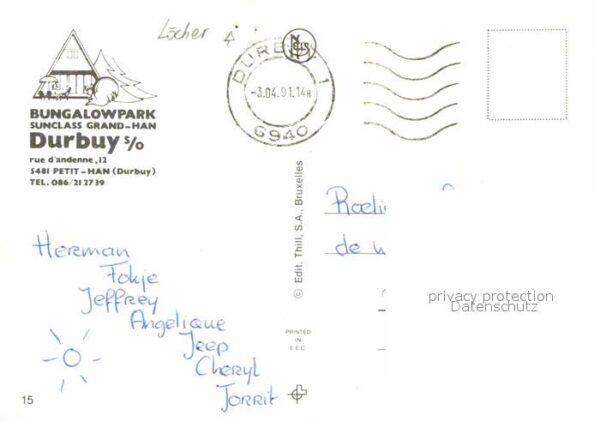 Löcher
BUNGALOWPARK
SUNCLASS GRAND-HAN
Durbuy s/o
rue d'andenne,12
5481 PETIT-HAN (Durbuy)
TEL. 086/212739
NELS
DURBUY 1
-3.04.91.14H
6940
© Edit. Thill, S.A., Bruxelles
PRINTED
IN
E.E.C.
Herman
Fokje
Jeffrey
Angelique
Jeep
Cheryl
Jorrit
de
privacy protection
Datenschutz
15